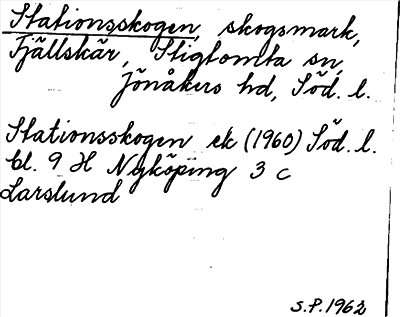 Stationsskogen, skogsmark,
Fjällskär, Stigtomta sn,
Jönåkers hd, Söd. l.
Stationsskogen ek (1960) Söd. l.
bl. 9 H Nyköping 3 c
Larslund
S.P. 1962